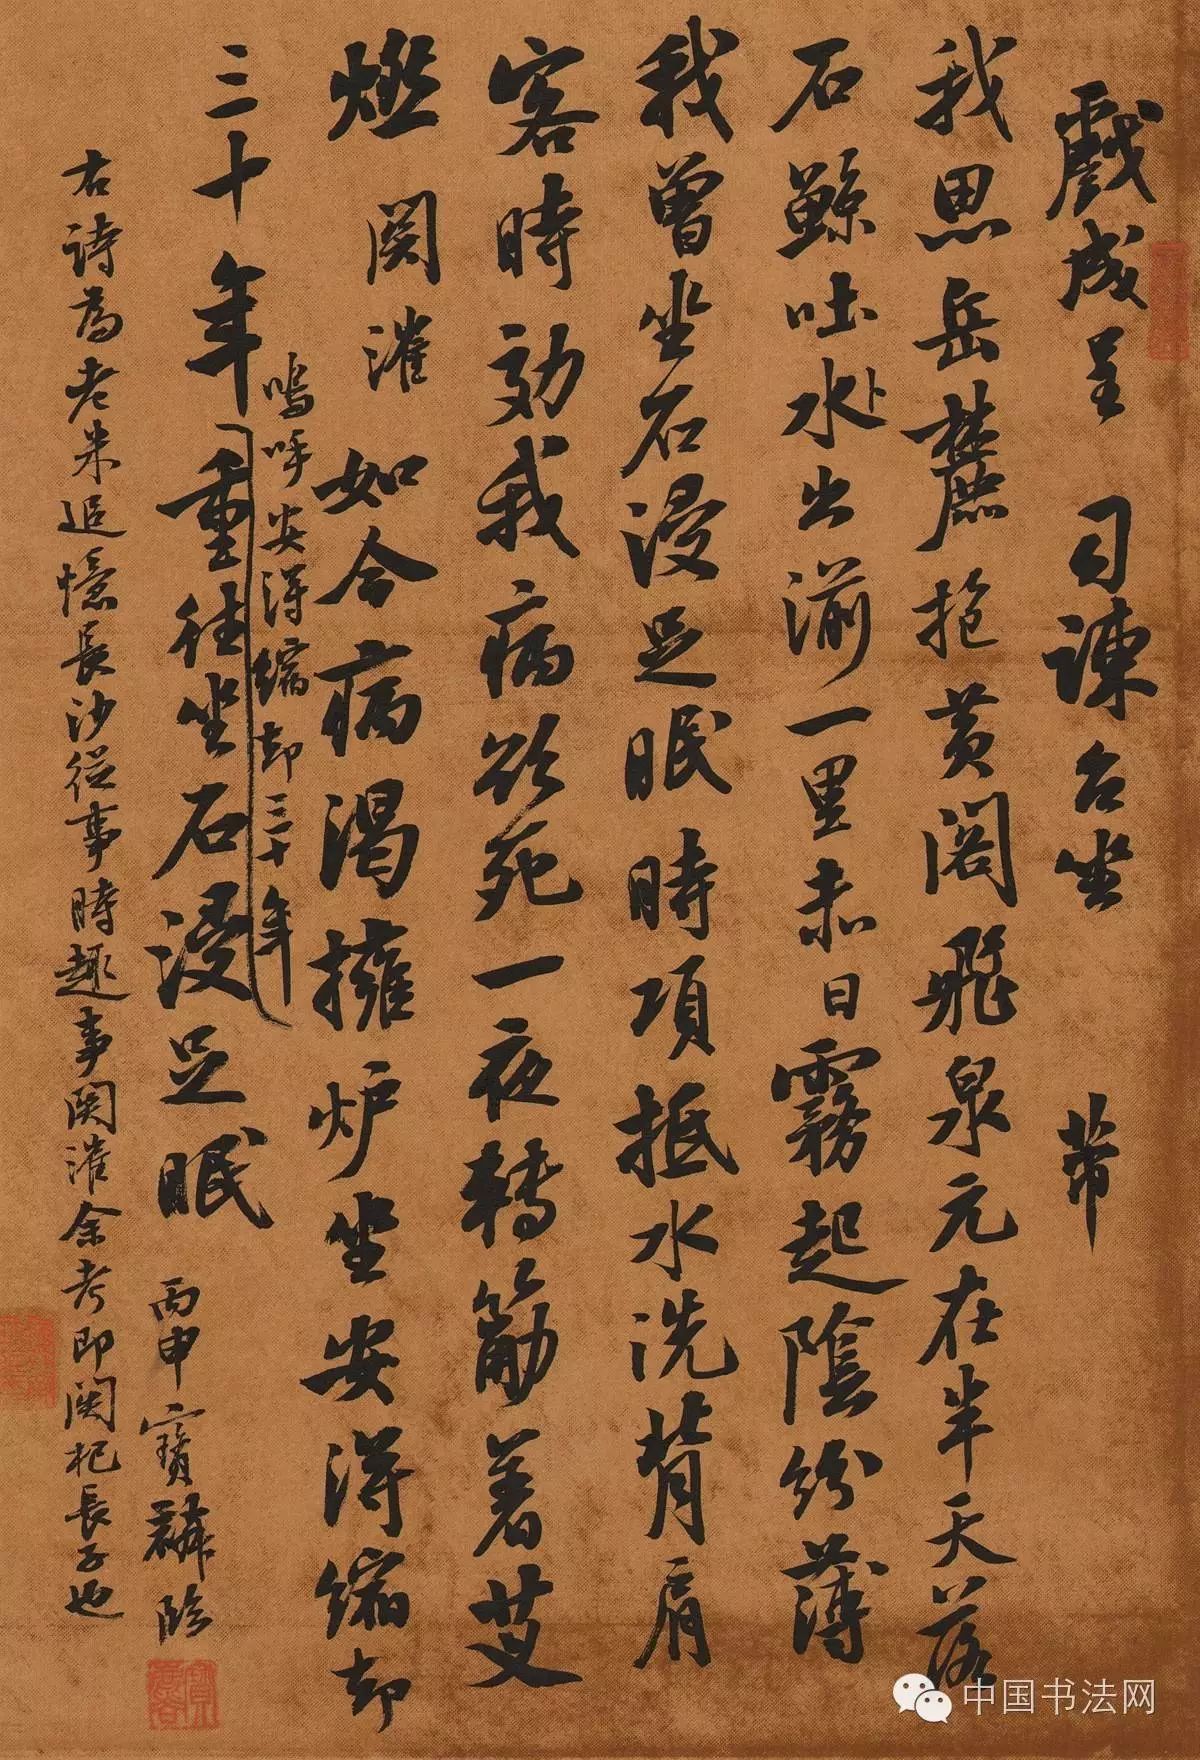 戲成呈 司諫台坐 芾
我思岳麓抱黄阁飛泉元在半天落
石鲸吐水卜出湔一里赤日霧起陰紛薄
我曾坐石浸足眠時項抵水洗背肩
客時効我病欲死一夜轉筋着艾
燃 関澥 如今病渴擁炉坐安得缩却
嗚呼安得缩却三十年
三十年重往坐石浸足眠
丙申寶麟臨
右詩為老米追憶長沙從事時趣事関澥余考即関杞長子也
中国书法网